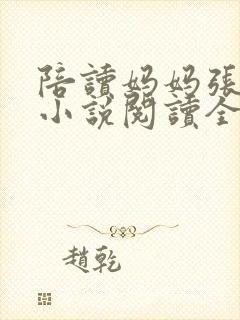 陪讀媽媽張
小說閱讀全
趙乾